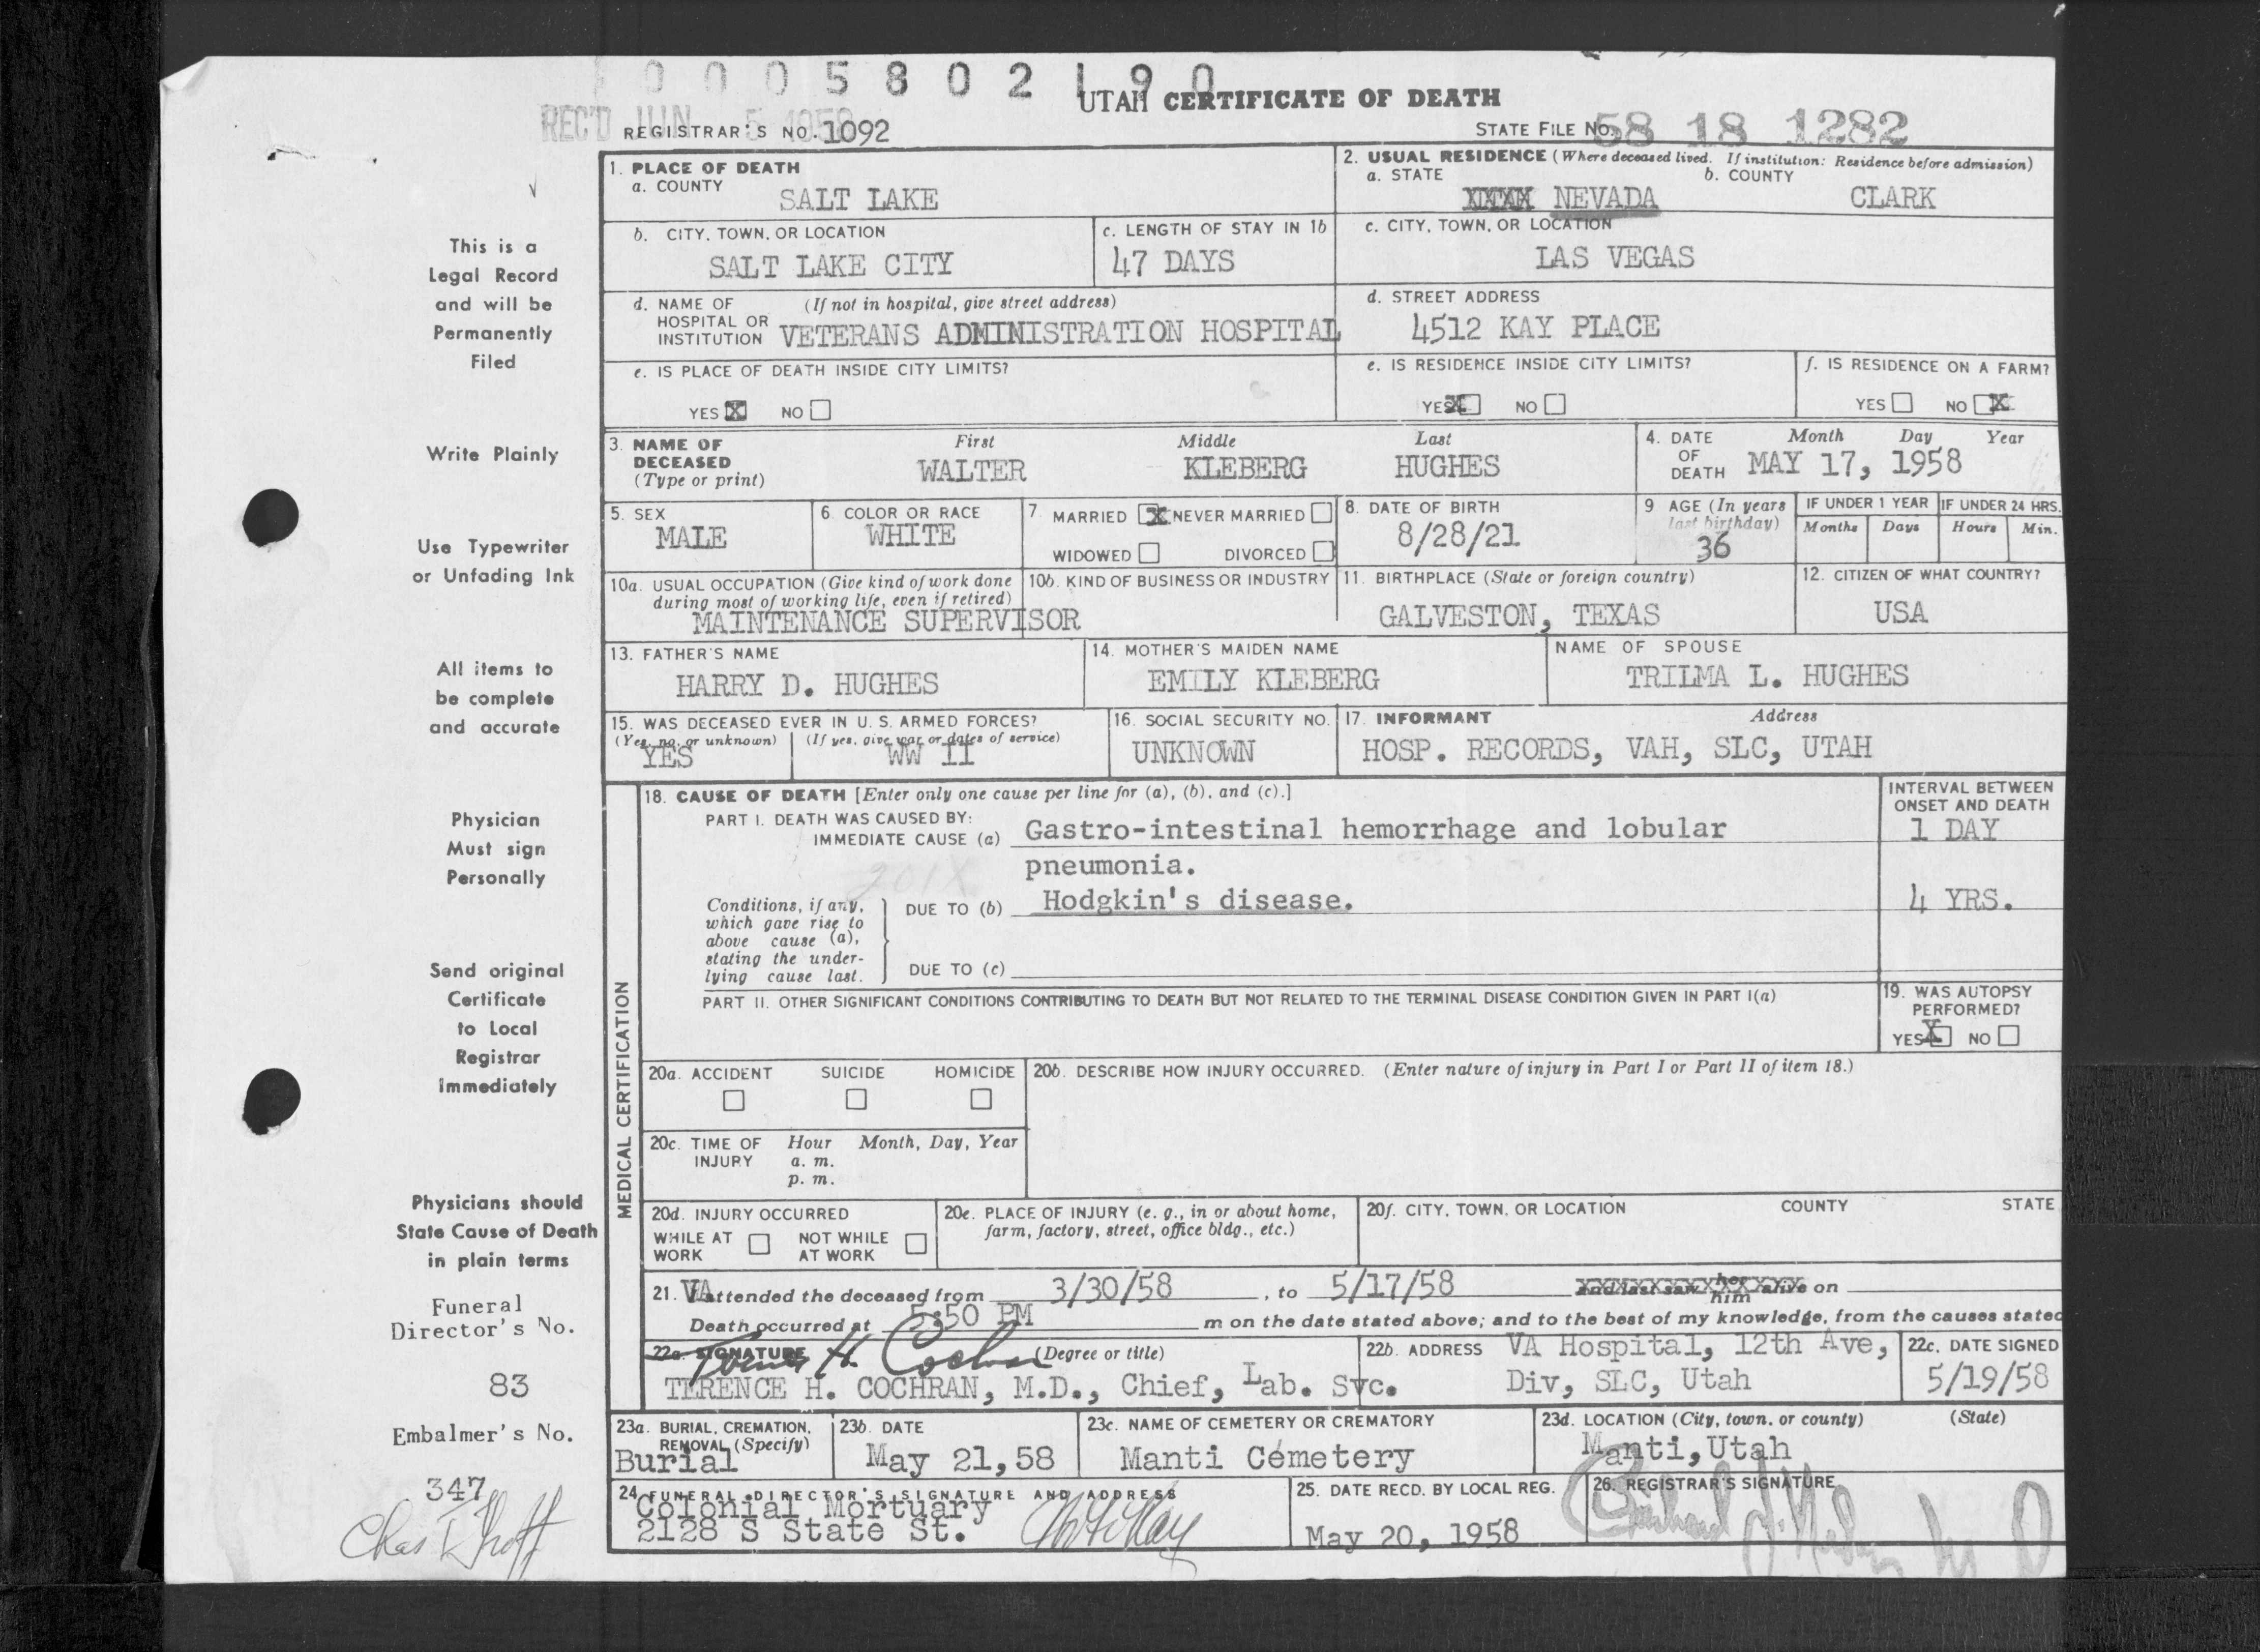 0005802190
UTAH CERTIFICATE OF DEATH
REC'D JUN 5 1958
REGISTRAR'S NO. 1092
STATE FILE NO. 58 18 1282
1. PLACE OF DEATH
a. COUNTY
SALT LAKE
2. USUAL RESIDENCE (Where deceased lived. If institution: Residence before admission)
a. STATE b. COUNTY
NEVADA CLARK
b. CITY, TOWN, OR LOCATION
SALT LAKE CITY
c. LENGTH OF STAY IN 1b
47 DAYS
c. CITY, TOWN, OR LOCATION
LAS VEGAS
d. NAME OF HOSPITAL OR INSTITUTION (If not in hospital, give street address)
VETERANS ADMINISTRATION HOSPITAL
d. STREET ADDRESS
4512 KAY PLACE
e. IS PLACE OF DEATH INSIDE CITY LIMITS?
YES X NO
e. IS RESIDENCE INSIDE CITY LIMITS?
YES X NO
f. IS RESIDENCE ON A FARM?
YES NO X
3. NAME OF DECEASED (Type or print)
First Middle Last
WALTER KLEBERG HUGHES
4. DATE OF DEATH
Month Day Year
MAY 17, 1958
5. SEX
MALE
6. COLOR OR RACE
WHITE
7. MARRIED X NEVER MARRIED
WIDOWED DIVORCED
8. DATE OF BIRTH
8/28/21
9 AGE (In years last birthday)
36
IF UNDER 1 YEAR IF UNDER 24 HRS.
Months Days Hours Min.
10a. USUAL OCCUPATION (Give kind of work done during most of working life, even if retired)
MAINTENANCE SUPERVISOR
10b. KIND OF BUSINESS OR INDUSTRY
11. BIRTHPLACE (State or foreign country)
GALVESTON, TEXAS
12. CITIZEN OF WHAT COUNTRY?
USA
13. FATHER'S NAME
HARRY D. HUGHES
14. MOTHER'S MAIDEN NAME
EMILY KLEBERG
NAME OF SPOUSE
TRILMA L. HUGHES
15. WAS DECEASED EVER IN U. S. ARMED FORCES?
(Yes, no, or unknown) (If yes, give war or dates of service)
YES WW II
16. SOCIAL SECURITY NO.
UNKNOWN
17. INFORMANT Address
HOSP. RECORDS, VAH, SLC, UTAH
MEDICAL CERTIFICATION
18. CAUSE OF DEATH [Enter only one cause per line for (a), (b), and (c).]
INTERVAL BETWEEN ONSET AND DEATH
PART I. DEATH WAS CAUSED BY:
IMMEDIATE CAUSE (a) Gastro-intestinal hemorrhage and lobular 1 DAY
pneumonia.
201X
Conditions, if any, which gave rise to above cause (a), stating the underlying cause last.
DUE TO (b) Hodgkin's disease. 4 YRS.
DUE TO (c)
PART II. OTHER SIGNIFICANT CONDITIONS CONTRIBUTING TO DEATH BUT NOT RELATED TO THE TERMINAL DISEASE CONDITION GIVEN IN PART I(a)
19. WAS AUTOPSY PERFORMED?
YES X NO
20a. ACCIDENT SUICIDE HOMICIDE
20b. DESCRIBE HOW INJURY OCCURRED. (Enter nature of injury in Part I or Part II of item 18.)
20c. TIME OF INJURY Hour Month, Day, Year
a. m.
p. m.
20d. INJURY OCCURRED
WHILE AT WORK NOT WHILE AT WORK
20e. PLACE OF INJURY (e. g., in or about home, farm, factory, street, office bldg., etc.)
20f. CITY, TOWN, OR LOCATION COUNTY STATE
21. VA attended the deceased from 3/30/58, to 5/17/58 and last saw her him alive on
Death occurred at 5:50 PM m on the date stated above; and to the best of my knowledge, from the causes stated
22a. SIGNATURE (Degree or title)
Terence H. Cochran
TERENCE H. COCHRAN, M.D., Chief, Lab. Svc.
22b. ADDRESS VA Hospital, 12th Ave,
Div, SLC, Utah
22c. DATE SIGNED
5/19/58
23a. BURIAL, CREMATION, REMOVAL (Specify)
Burial
23b. DATE
May 21, 58
23c. NAME OF CEMETERY OR CREMATORY
Manti Cemetery
23d. LOCATION (City, town, or county) (State)
Manti, Utah
24. FUNERAL DIRECTOR'S SIGNATURE AND ADDRESS
Colonial Mortuary
2128 S State St.
25. DATE RECD. BY LOCAL REG.
May 20, 1958
26. REGISTRAR'S SIGNATURE
This is a
Legal Record
and will be
Permanently
Filed
Write Plainly
Use Typewriter
or Unfading Ink
All items to
be complete
and accurate
Physician
Must sign
Personally
Send original
Certificate
to Local
Registrar
immediately
Physicians should
State Cause of Death
in plain terms
Funeral
Director's No.
83
Embalmer's No.
347